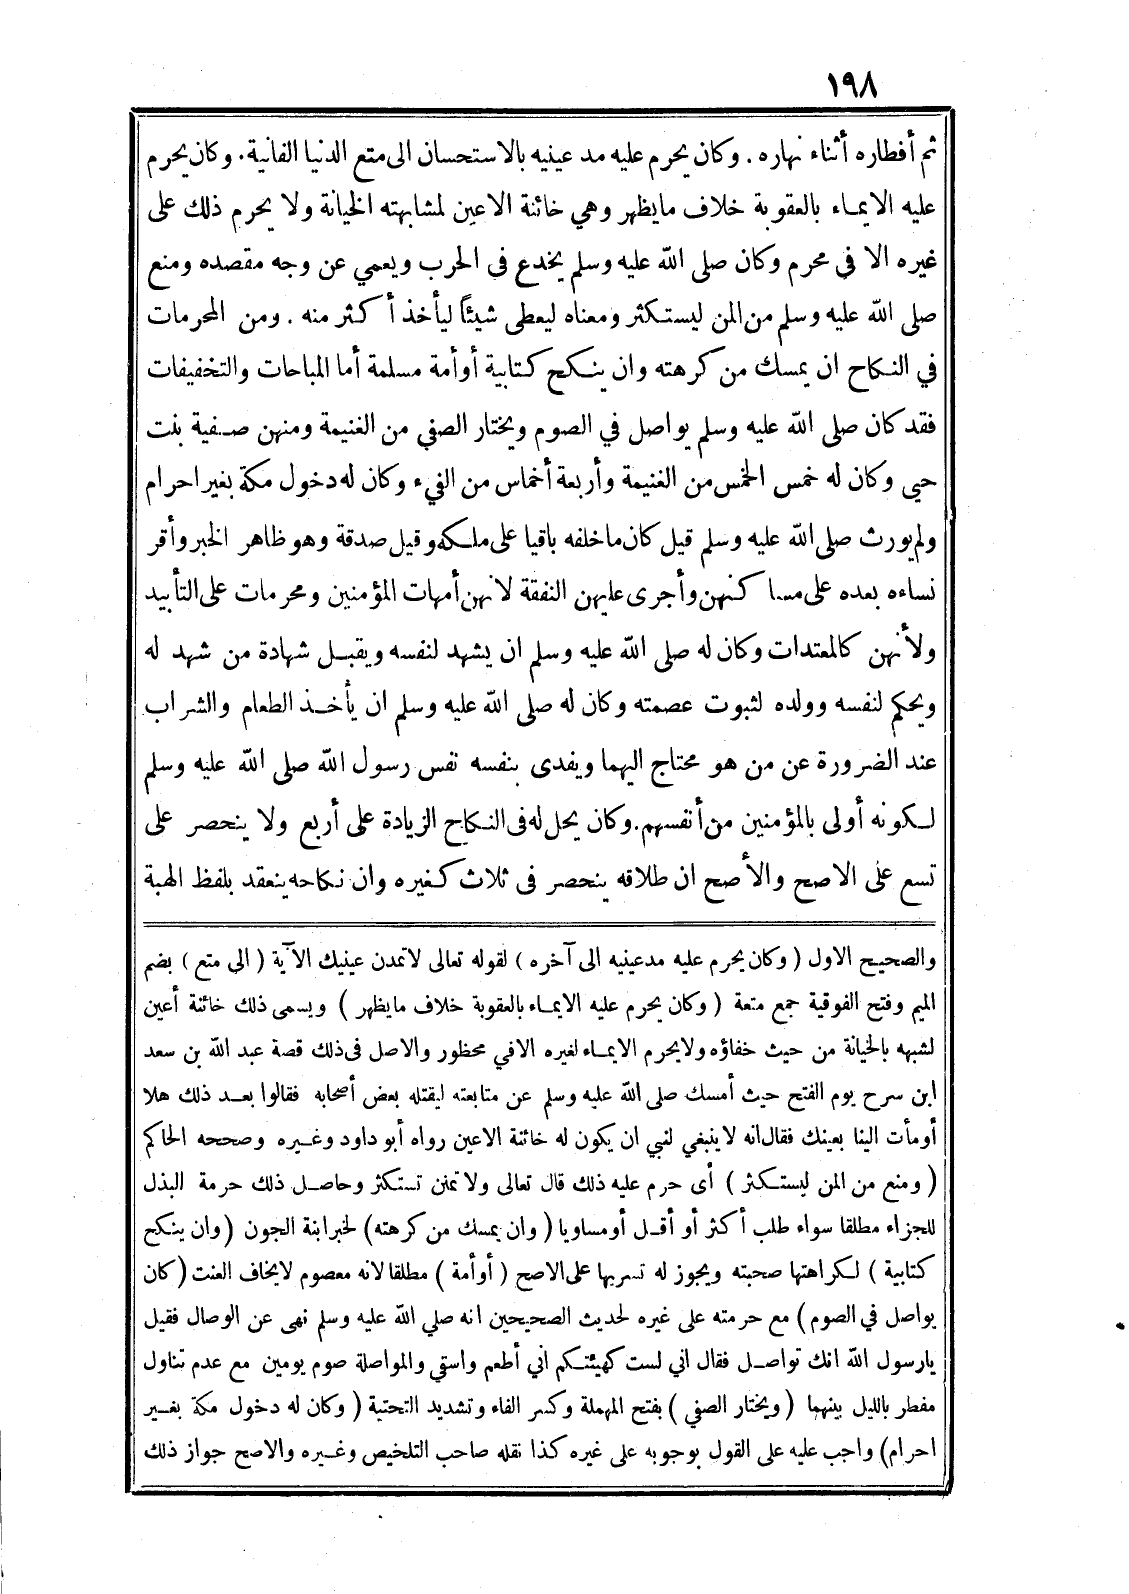 ١٩٨
ثم أفطاره أثناء نهاره . وكان يحرم عليه مد عينيه بالاستحسان الى متع الدنيا الفانية . وكان يحرم
عليه الايماء بالعقوبة خلاف مايظهر وهي خائنة الاعين لمشابهته الخيانة ولا يحرم ذلك على
غيره الا في محرم وكان صلى الله عليه وسلم يخدع فى الحرب ويعمي عن وجه مقصده ومنع
صلى الله عليه وسلم من المن ليستكثر ومعناه ليعطى شيئاً ليأخذ أكثر منه . ومن المحرمات
في النكاح ان يمسك من كرهته وان ينكح كتابية أوأمة مسلمة أما المباحات والتخفيفات
فقد كان صلى الله عليه وسلم يواصل في الصوم ويختار الصفي من الغنيمة ومنهن صفية بنت
حيى وكان له خمس الخمس من الغنيمة وأربعة أخماس من الفيء وكان له دخول مكة بغير احرام
ولم يورث صلى الله عليه وسلم قيل كان ماخلفه باقيا على ملكه وقيل صدقة وهو ظاهر الخبر وأقر
نساءه بعده على مساكنهن وأجرى عليهن النفقة لانهن أمهات المؤمنين ومحرمات على التأبيد
ولأنهن كالمعتدات وكان له صلى الله عليه وسلم ان يشهد لنفسه ويقبل شهادة من شهد له
ويحكم لنفسه وولده لثبوت عصمته وكان له صلى الله عليه وسلم ان يأخذ الطعام والشراب
عند الضرورة عن من هو محتاج اليهما ويفدى بنفسه نفس رسول الله صلى الله عليه وسلم
لكونه أولى بالمؤمنين من أنفسهم . وكان يحل له فى النكاح الزيادة على أربع ولا ينحصر على
تسع على الاصح والأصح ان طلاقه ينحصر فى ثلاث كغيره وان نكاحه ينعقد بلفظ الهبة
والصحيح الاول ( وكان يحرم عليه مدعينيه الى آخره ) لقوله تعالى لاتمدن عينيك الآية ( الى متع ) بضم
الميم وفتح الفوقية جمع متعة ( وكان يحرم عليه الايماء بالعقوبة خلاف مايظهر ) ويسمى ذلك خائنة أعين
لشبهه بالخيانة من حيث خفاؤه ولايحرم الايماء لغيره الافي محظور والاصل فى ذلك قصة عبد الله بن سعد
ابن سرح يوم الفتح حيث أمسك صلى الله عليه وسلم عن متابعته ليقتله بعض أصحابه فقالوا بعد ذلك هلا
أومأت الينا بعينك فقال انه لاينبغي لنبي ان يكون له خائنة الاعين رواه أبو داود وغيره وصححه الحاكم
( ومنع من المن ليستكثر ) أى حرم عليه ذلك قال تعالى ولا تمنن تستكثر وحاصل ذلك حرمة البذل
للجزاء مطلقا سواء طلب أكثر أو أقل أومساويا ( وان يمسك من كرهته) لخبر ابنة الجون (وان ينكح
كتابية ) لكراهتها صحبته ويجوز له تسريها على الاصح ( أوأمة ) مطلقا لانه معصوم لايخاف العنت (كان
يواصل في الصوم ) مع حرمته على غيره لحديث الصحيحين انه صلي الله عليه وسلم نهى عن الوصال فقيل
يارسول الله انك تواصل فقال اني لست كهيئتكم اني أطعم واسقى والمواصلة صوم يومين مع عدم تناول
مفطر بالليل بينهما ( ويختار الصفي ) بفتح المهملة وكسر الفاء وتشديد التحتية ( وكان له دخول مكة بغير
احرام) واجب عليه على القول بوجوبه على غيره كذا نقله صاحب التلخيص وغيره والاصح جواز ذلك